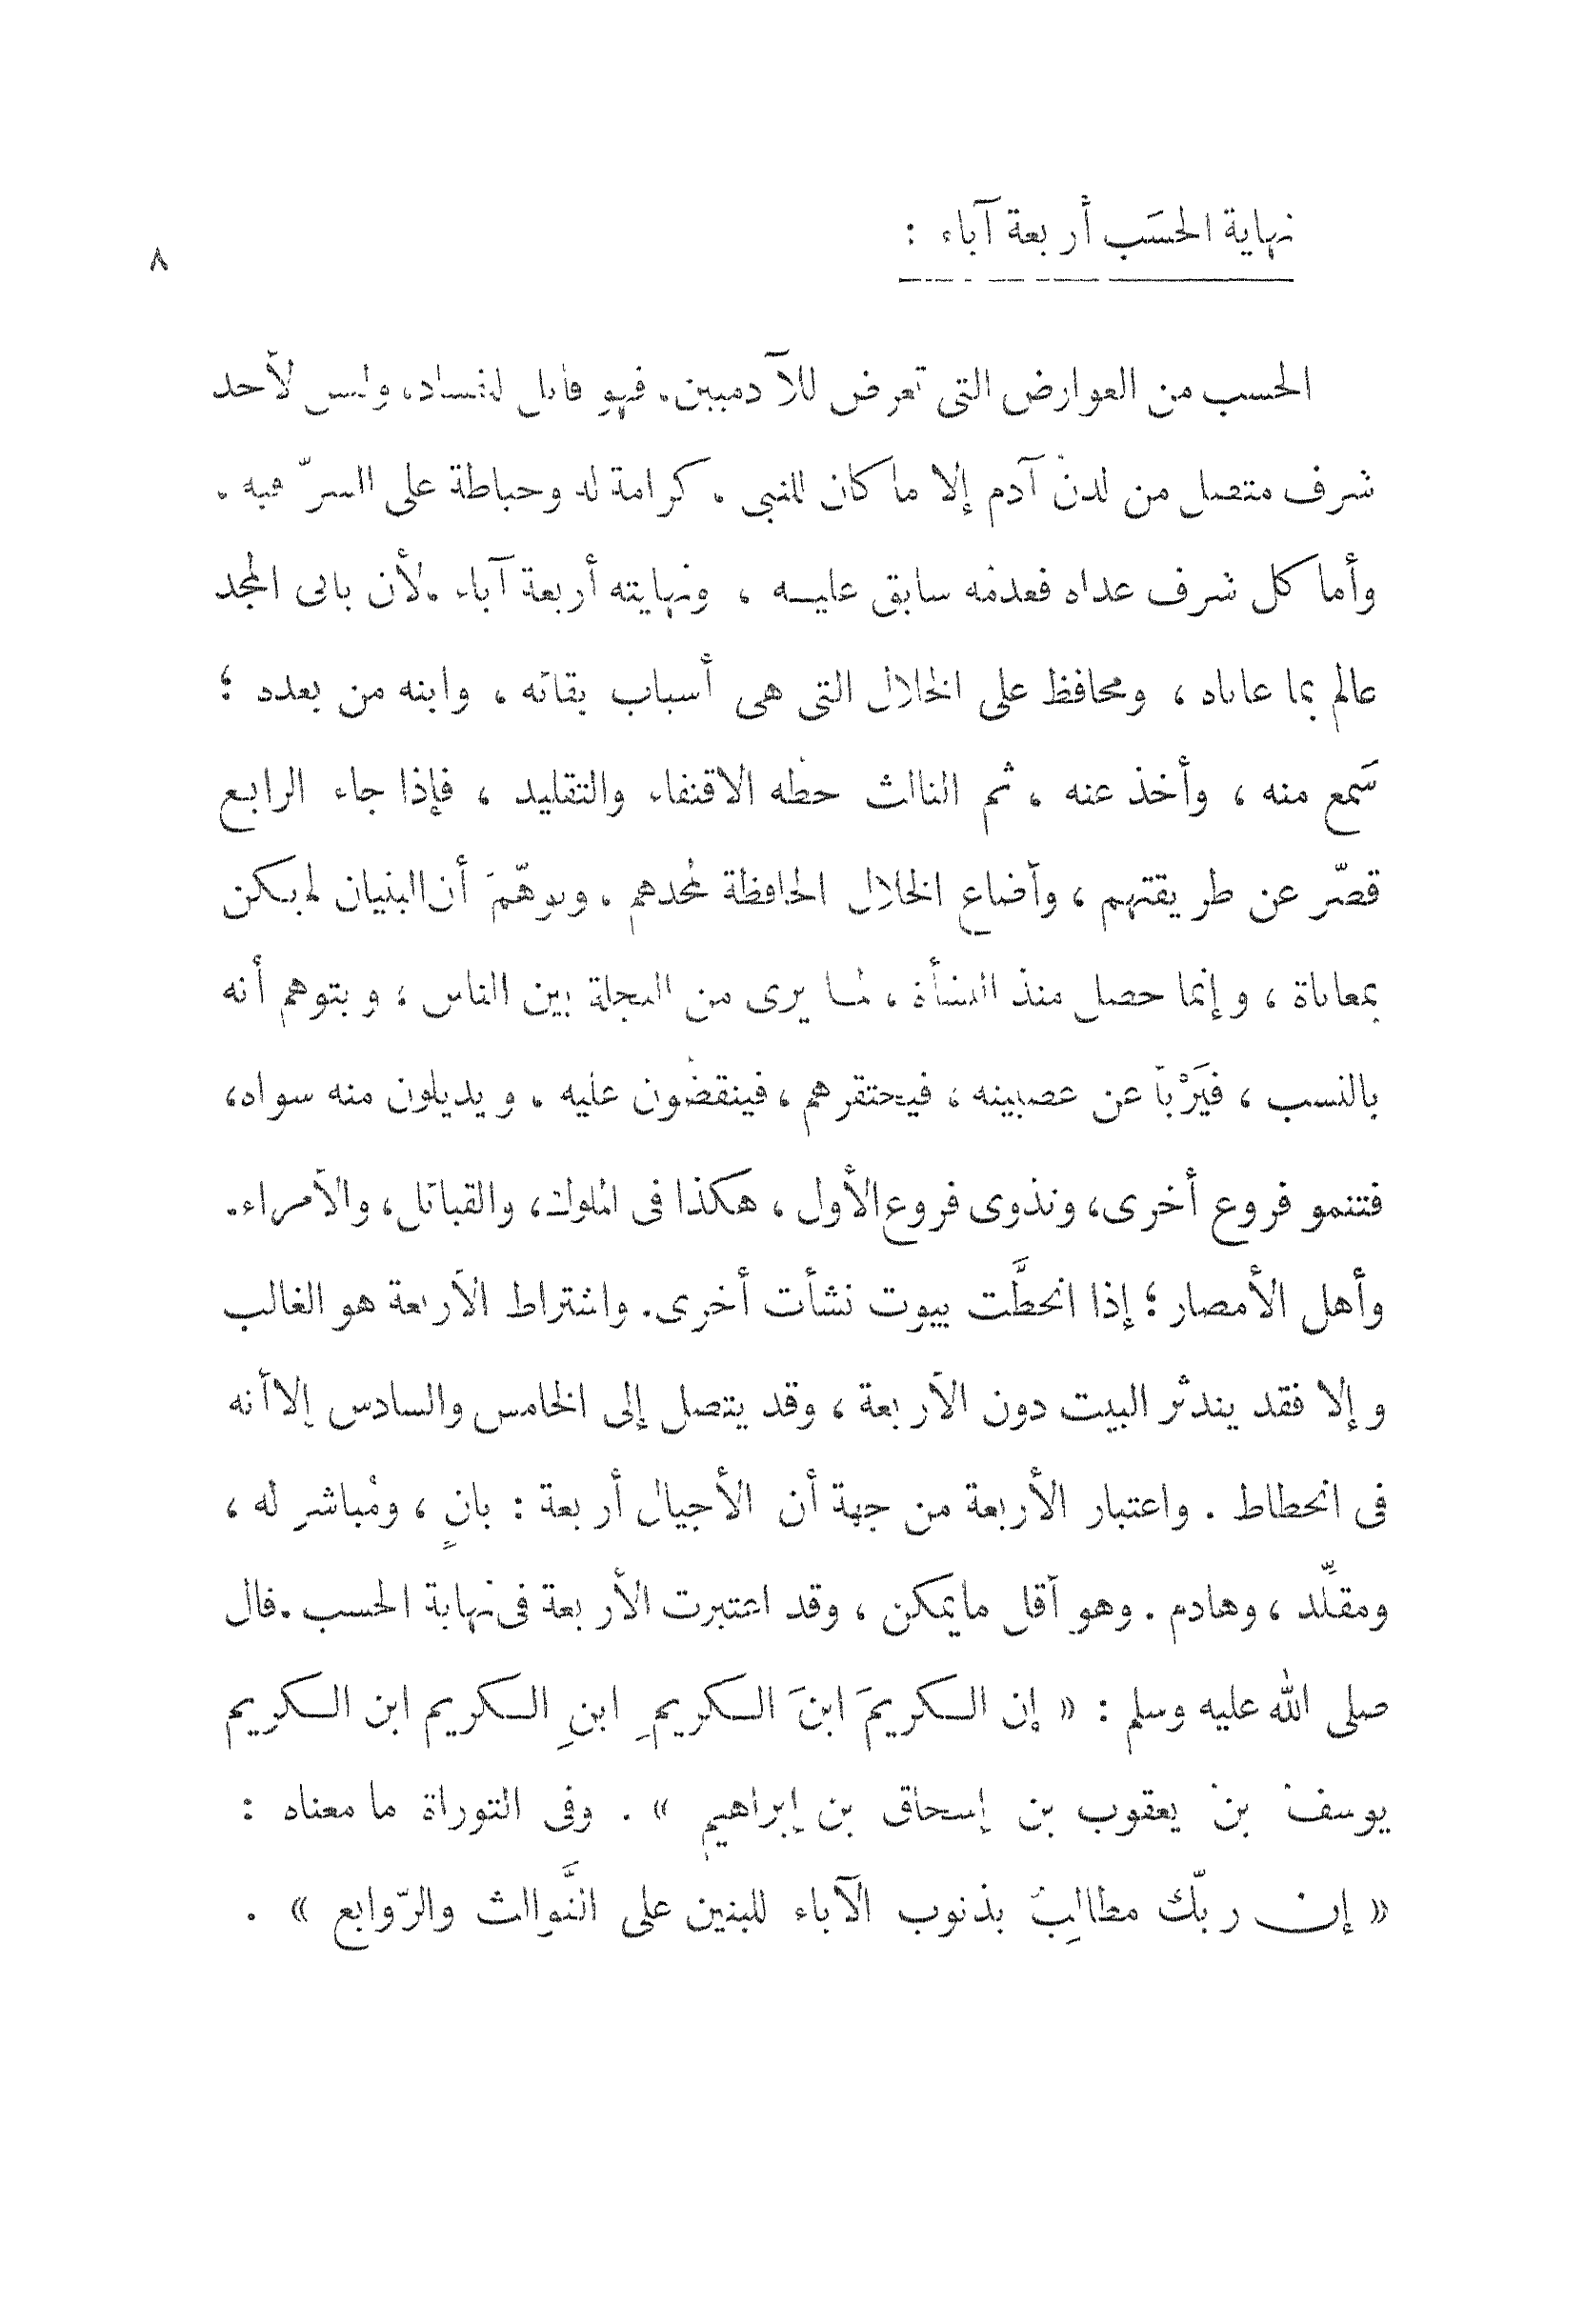 نهاية الحسَب أربعة آباء :
٨
الحسب من العوارض التى تعرض للآدميين. فهو قابل للفساد، وليس لأحد
شرف متصل من لدنْ آدم إلا ما كان للنبى ، كرامة له وحياطة على السرّ فيه .
وأما كل شرف عداه فعدمُه سابق عليـــه ، ونهايته أربعة آباء .لأن بانى المجد
عالم بما عاناه ، ومحافظ على الخلال التى هى أسباب بقائه ، وابنه من بعده ؛
سَمع منه ، وأخذ عنه ، ثم الثالث حظه الاقتفاء والتقليد ، فإذا جاء الرابع
قصّر عن طريقتهم ، وأضاع الخلال الحافظة لمجدهم ، وتوهّمَ أن البنيان لم يكن
بمعاناة ، وإنما حصل منذ النشأة ، لمــا يرى من التجلة بين الناس ، ويتوهم أنه
بالنسب ، فيَرْبأ عن عصبيته ، فيحتقرهم ، فينقضُون عليه ، ويديلون منه سواه،
فتنمو فروع أخرى، وتذوى فروع الأول ، هكذا فى الملوك، والقبائل، والأمراء.
وأهل الأمصار؛ إذا انحطَّت بيوت نشأت أخرى. واشتراط الأربعة هو الغالب
وإلا فقد يندثر البيت دون الأربعة ، وقد يتصل إلى الخامس والسادس إلا أنه
فى انحطاط . واعتبار الأربعة من جهة أن الأجيال أربعة : بانٍ ، ومُباشر له ،
ومقلِّد ، وهادم . وهو أقل مايمكن ، وقد اعتبرت الأربعة فى نهاية الحسب .قال
صلى الله عليه وسلم : « إن الـكريمَ ابنَ الـكريمِ ابنِ الـكريم ابن الـكريم
يوسفُ بنُ يعقوب بن إسحاق بن إبراهيم » . وفى التوراة ما معناه :
« إن ربّك مطالِبٌ بذنوب الآباء للبنين على الثَّوالث والرّوابع » .